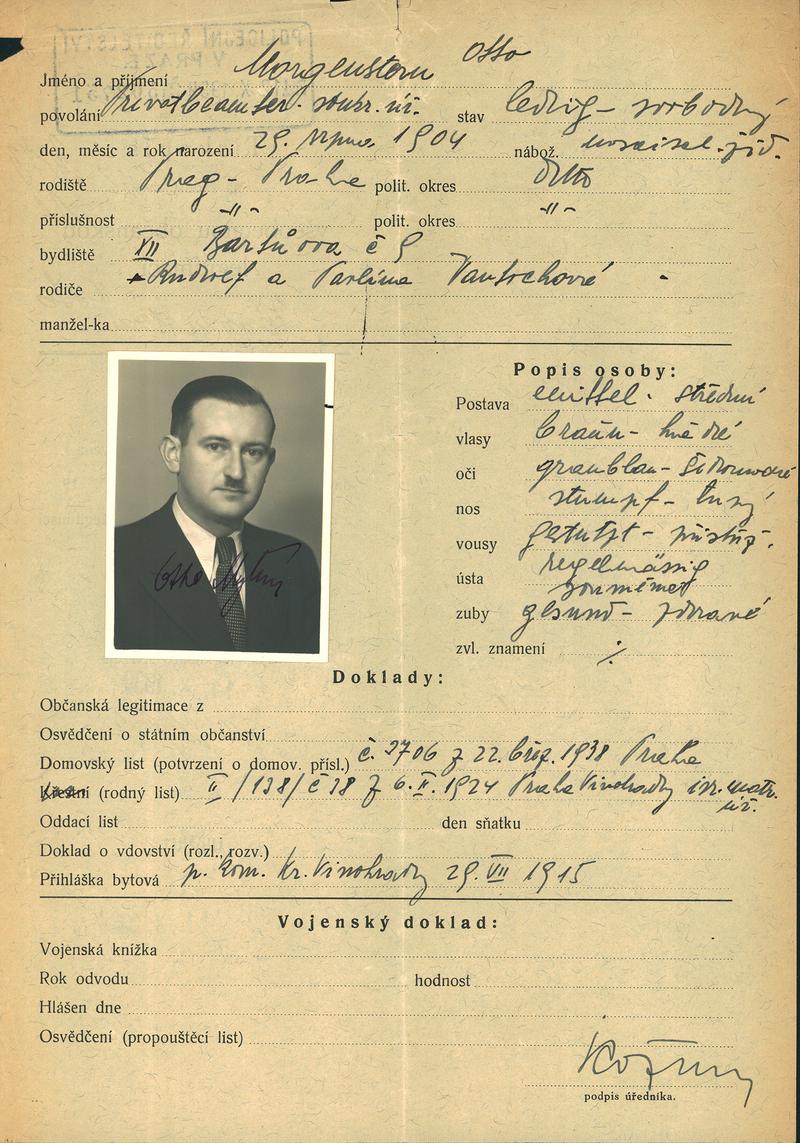 POLICEJNÍ ŘEDITELSTVÍ
V PRAZE
Jméno a příjmení Morgenstern Otto
povolání Privatbeamter. soukr. úř. stav ledig - svobodný
den, měsíc a rok narození 29. srpna 1904 nábož. mosaisch - žid.
rodiště Prag - Praha polit. okres Ditto
příslušnost -"- polit. okres -"-
bydliště VII Bartůova č 9
rodiče Rudolf a Pavlína
manžel-ka
Popis osoby:
Postava mittel. střední
vlasy braun - hnědé
oči graublau - šedomodré
nos stumpf - tupý
vousy gestutzt - přistřiž.
ústa regelmässig
souměrné
zuby gesund - zdravé
zvl. znamení ./.
Otto
Doklady:
Občanská legitimace z
Osvědčení o státním občanství
Domovský list (potvrzení o domov. přísl.) č. 3706 z 22. břez. 1938 Praha
Křestní (rodný list) II/138/č 38 z 6. II. 1924 Praha Vinohrady izr. matr.
úř.
Oddací list den sňatku
Doklad o vdovství (rozl., rozv.)
Přihláška bytová p. kom. Kr. Vinohrady 29. VII 1915
Vojenský doklad:
Vojenská knížka
Rok odvodu hodnost
Hlášen dne
Osvědčení (propouštěcí list)
podpis úředníka.